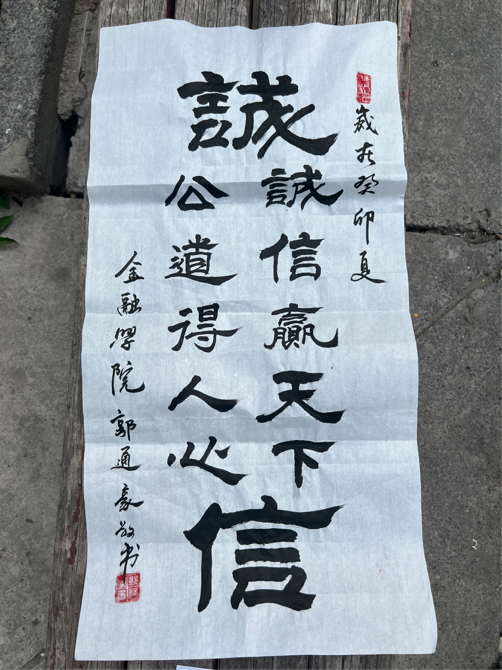 歲在癸卯夏
誠
誠信贏天下
公道得人心
信
金融學院郭通豪敬书